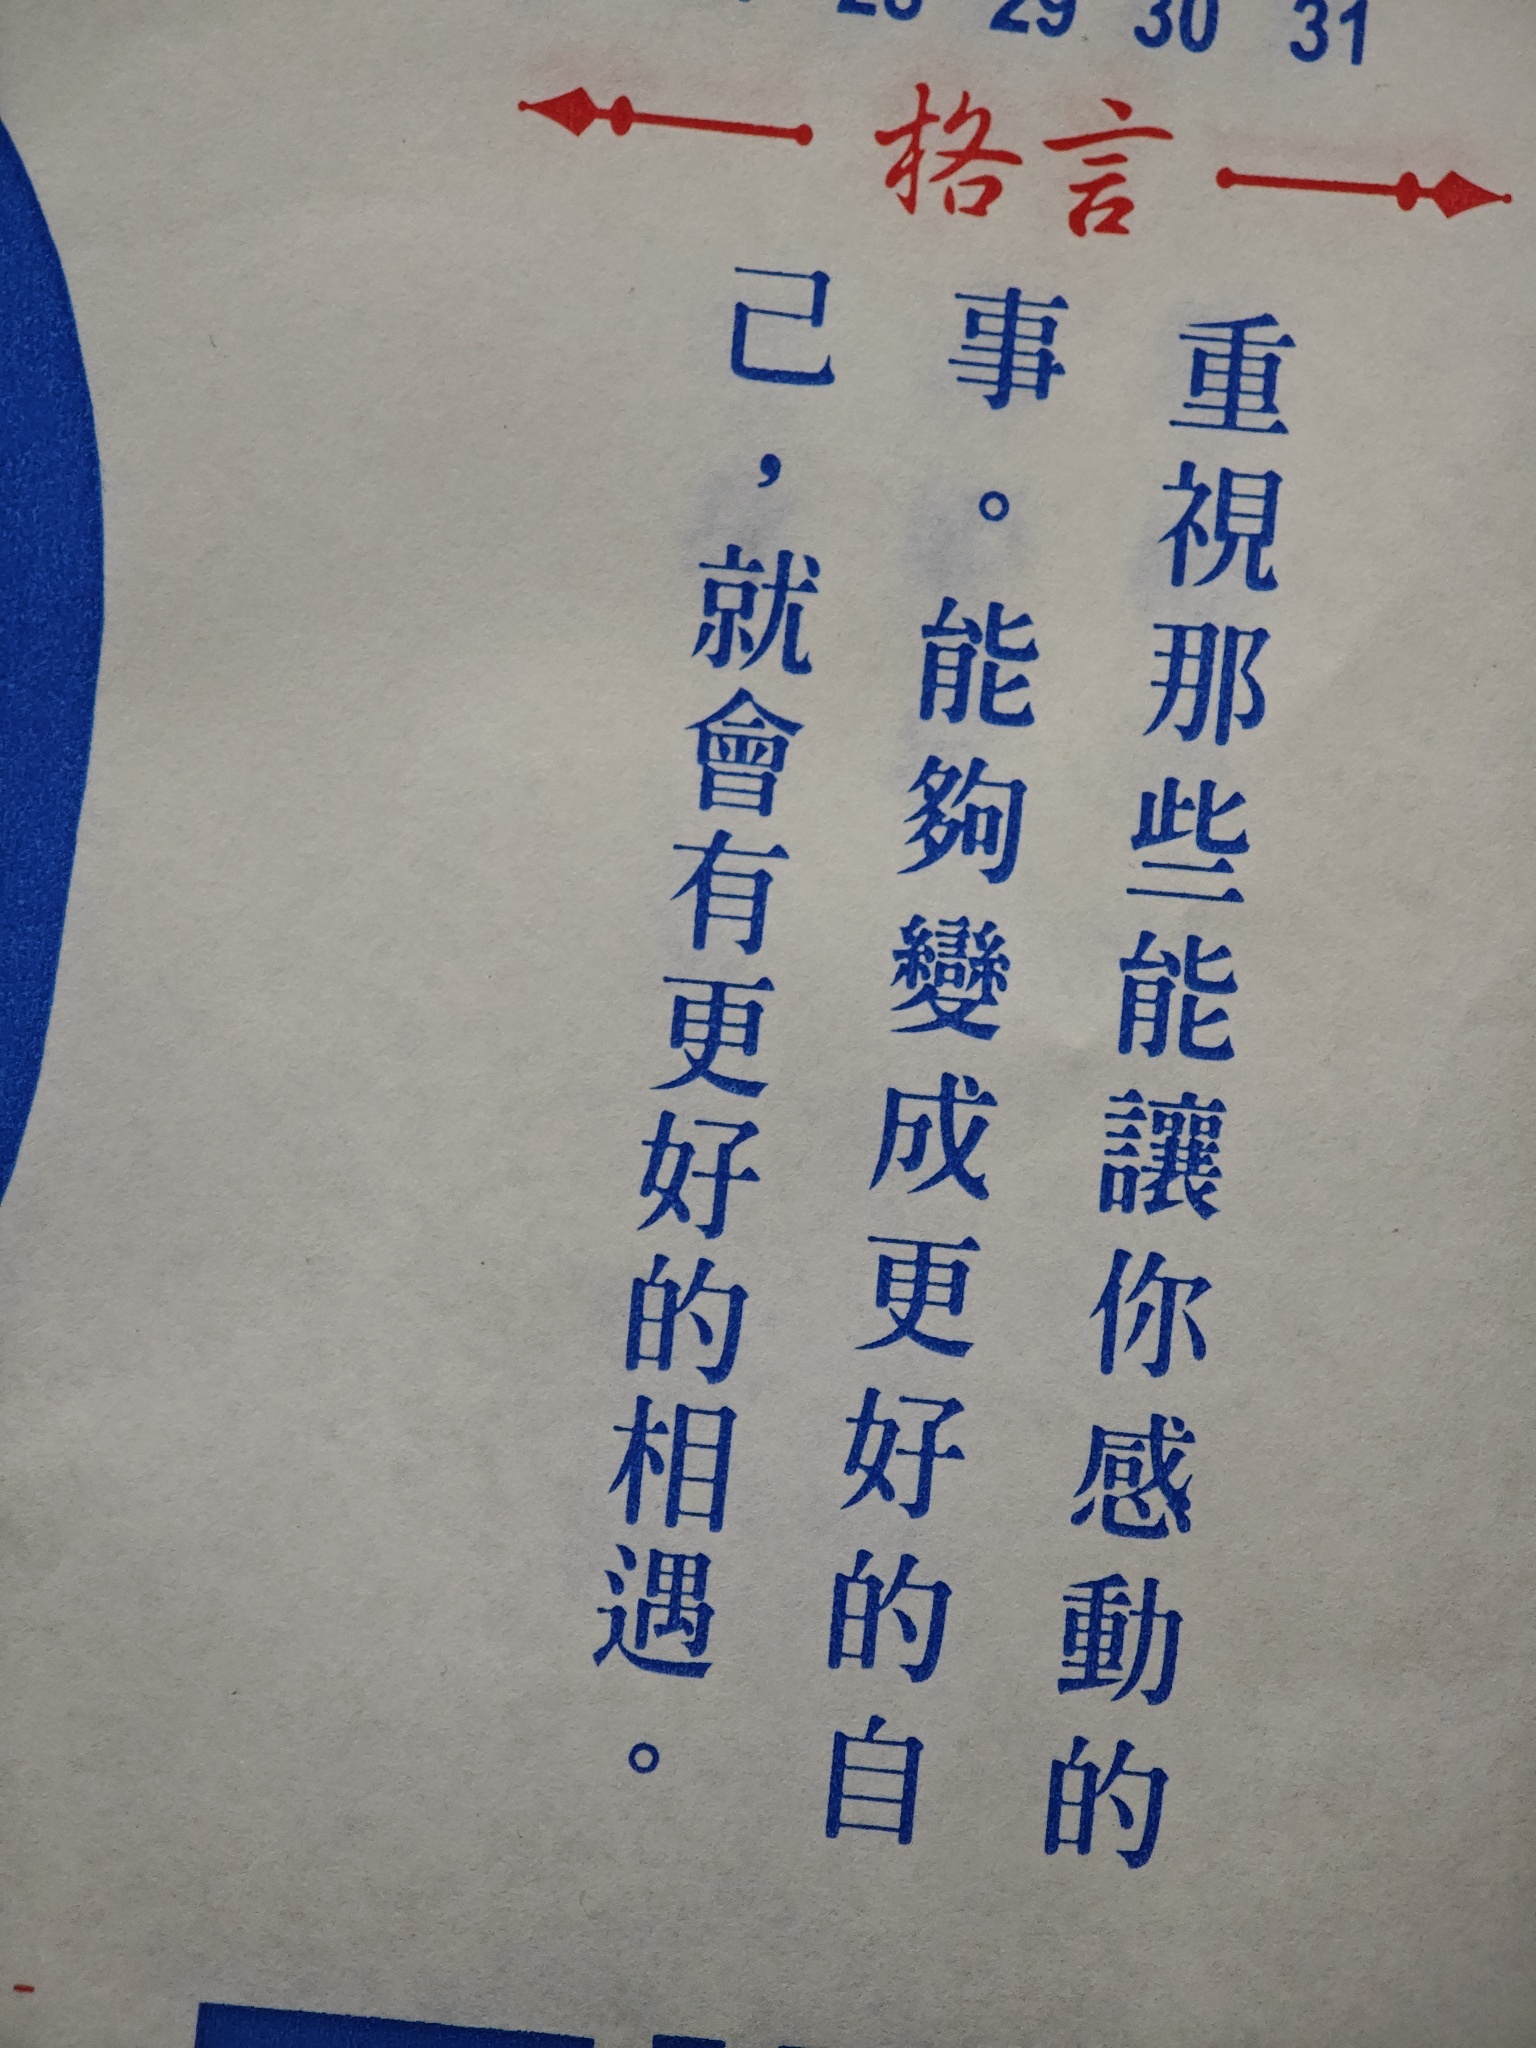 28 29 30 31
格言
重視那些能讓你感動的
事。能夠變成更好的自
己，就會有更好的相遇。